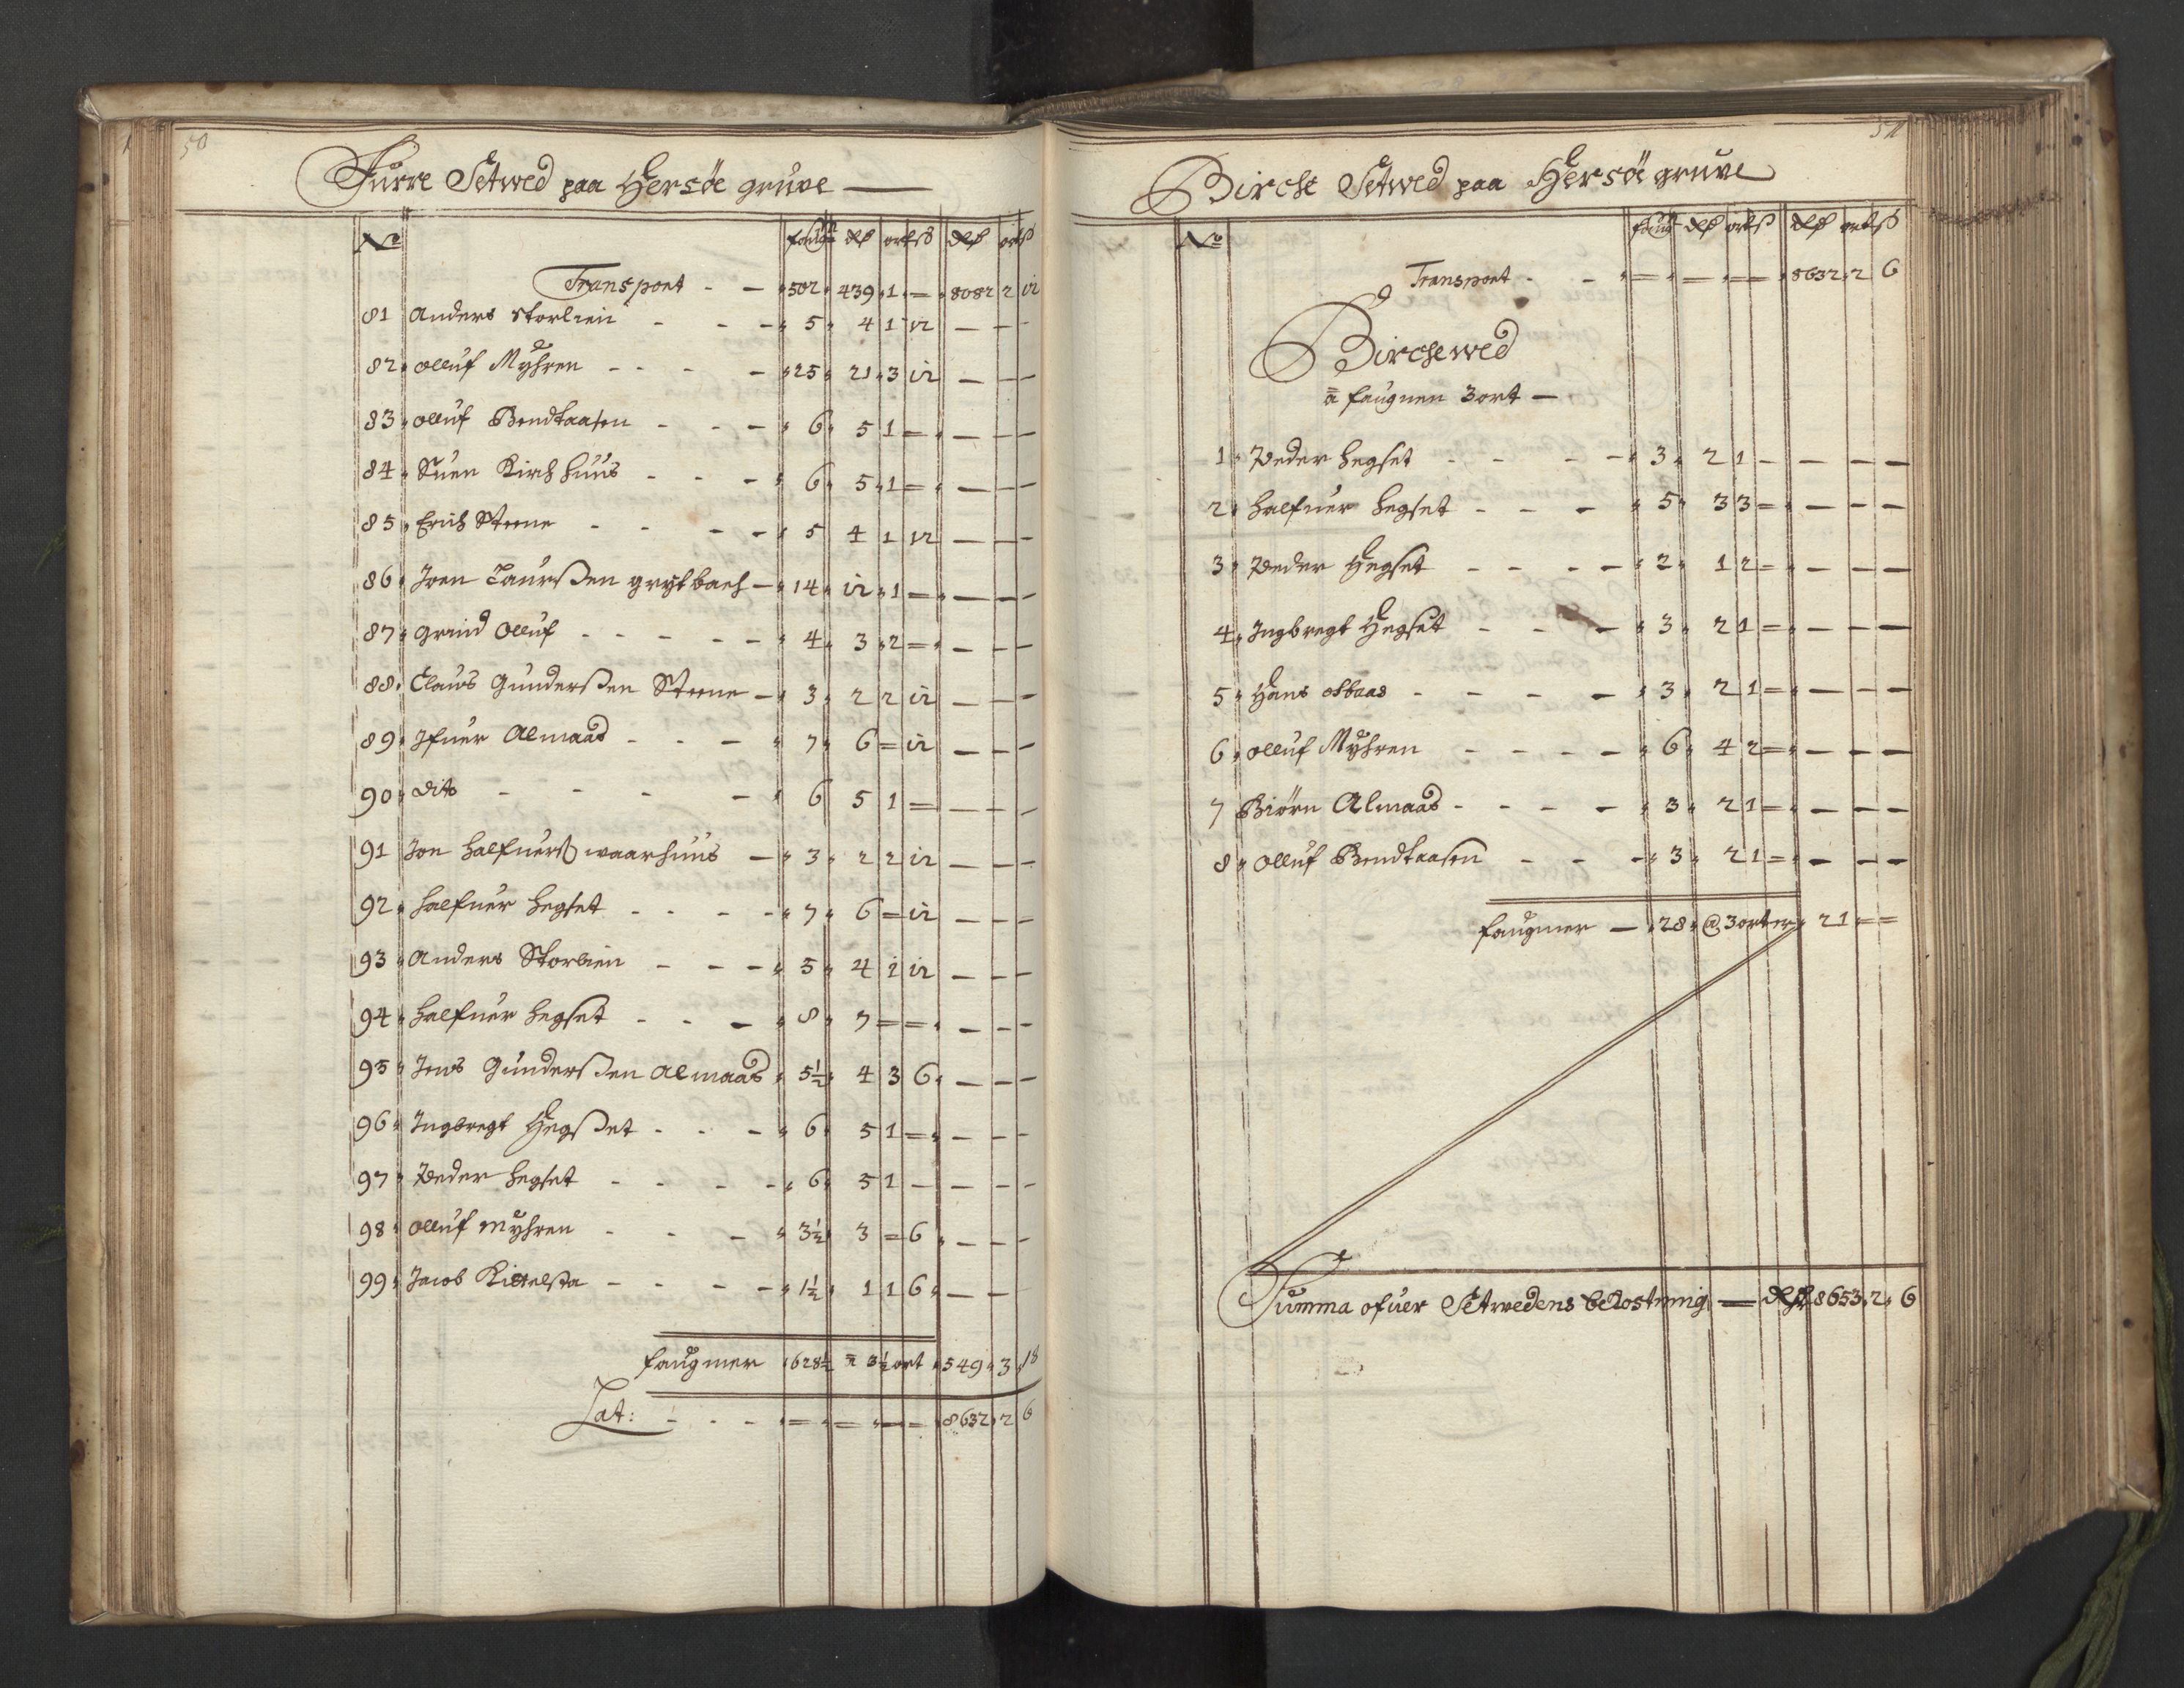 50
Furre Setwed paa Hersöe gruve —
No faugn dlr ort ß dlr ort ß
Transport - — 502 439 1 = 8082 2 12
81 Anders Storlien - - — 5 4 1 12 — — -
82 Olluf Myhren - - - — 25 21 3 12 — — —
83 Olluf Bendtaasen - - — 6 5 1 = — — —
84 Suen Kirchhuus - - — 6 5 1 = — — —
85 Erich Steene - - - — 5 4 1 12 — — —
86 Joen Laurßen grytbach — 14 12 1 = — — —
87 Grind Olluf - - - - — 4 3 2 = — — —
88 Claus Gunderßen Steene — 3 2 2 12 — — —
89 Ifuer Almaas - - — 7 6 = 12 — — —
90 dito - - - — 6 5 1 = — — —
91 Jon Halfuerß waarhuus — 3 2 2 12 — — —
92 Halfuer Hegset - - - - 7 6 = 12 — — —
93 Anders Storlien - - — 5 4 1 12 — — —
94 Halfuer Hegset - - — 8 7 = = — — —
95 Jens Gunderßen Almaas 5½ 4 3 6 — — —
96 Ingbregt Hegßet - - — 6 5 1 = — — —
97 Peder Hegset - - - - 6 5 1 — — — —
98 Olluf Myhren - - — 3½ 3 = 6 — — —
99 Jacob Kittelsta - - - — 1½ 1 1 6 — —
faugner 628½ a 3½ ort 549 3 18
Lat: - - - = = = = 8632 2 6
51
Birche Setwed paa Hersöe gruve
No faug dlr ort ß dlr ort ß
Transport - - = = = = 8632 2 6
Birchewed
a faugnen 3 ort —
1 Peder Hegset - - - — 3 2 1 — — — —
2 Halfuer Hegset - - — 5 3 3 = — — —
3 Peder Hegset - - - — 2 1 2 = — — —
4 Ingbregt Hegset - - — 3 2 1 = — — —
5 Hans Osbaas - - - — 3 2 1 = — — —
6 Olluf Myhren - - - — 6 4 2 = — — —
7 Biörn Almaas - - - — 3 2 1 = — — —
8 Olluf Bendtaasen - - — 3 2 1 = — — —
faugner — 28 @ 3 orter 21 = =
Summa ofuer Setwedens bekostning — dlr 8653 2 6